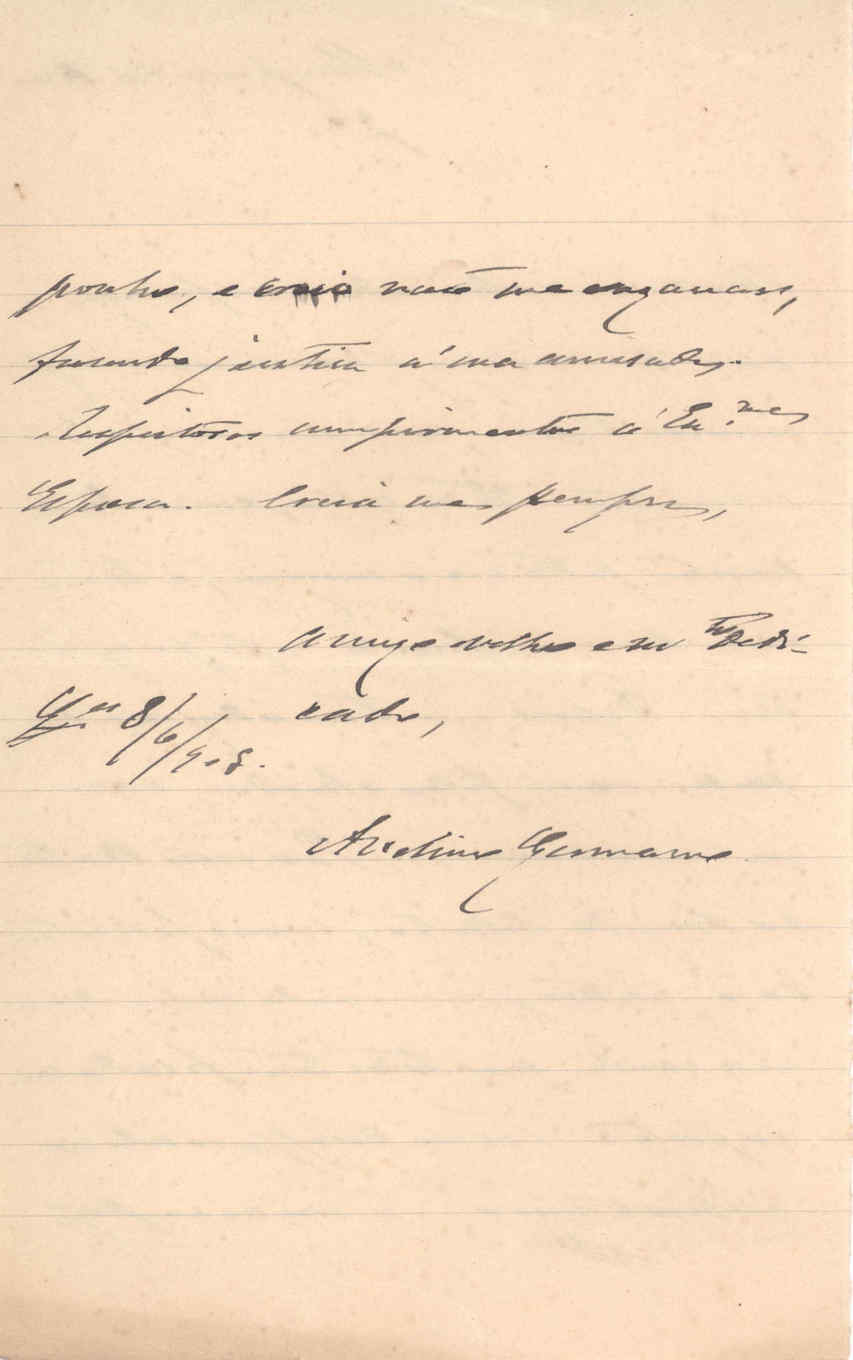 ponho, e creio não me enganar,
fasendo justiça á sua amisade.
Respeitosos cumprimentos á Ex.ma
Esposa. Creia me sempre,
amigo velho e m.to Dedi-
cado,
8/6/908.
Avelino Germano